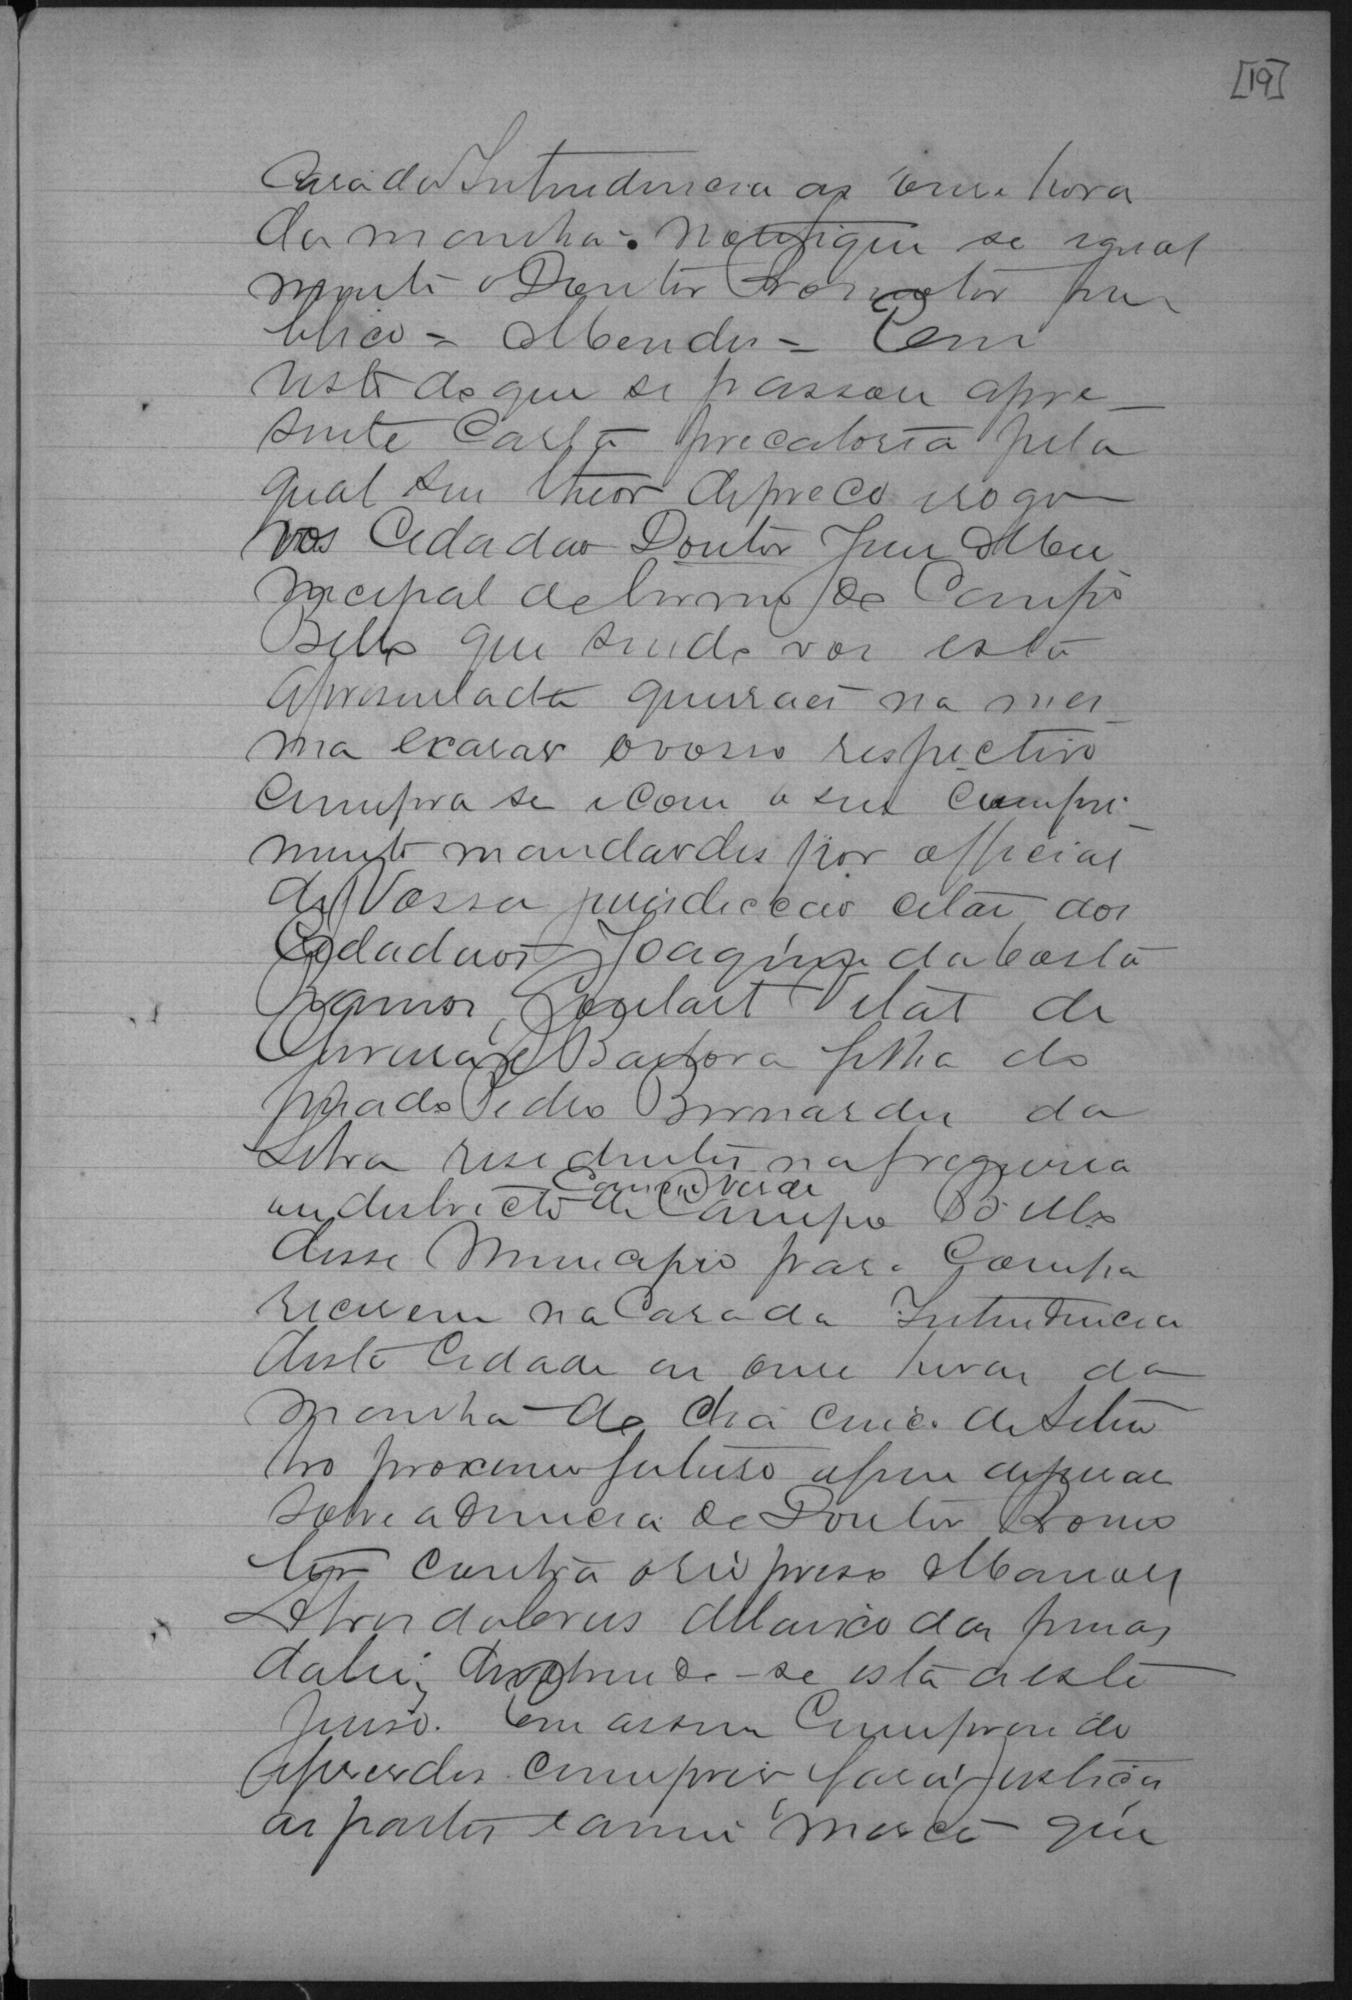 [19]
Casa da Intendencia as onse hora
da manhã. Notifique se igual
mente o Doutor Promotor pu
blico = Mendes = Em
vista do que se passou a pre_
sente Carta precatoria pela
qual seu theor depreco e rogo
vos Cidadão Doutor Juis Mu
nicipal do termo de Campo
Bello que sendo vos esta
apresentada queiraes na mes_
ma exarar o vosso respectivo
Cumpra se e com o seu Cumpri_
mento mandardes por official
de Vossa jurisdiccão citar aos
Cidadaos Joaquim da Costa
Ramos, Goulart Vilat de
Barbora filha do
finado Pedro Bernardes da
Silva residentes na freguesia
Campo Verde
ou districto de Campo Bello
desse Municipio para Compa
recerem na Casa da Intendencia
desta Cidade as onse horas da
manhã do dia cinco de Setem
bro proximo futuro afim depor
sobre a denuncia do Doutor Promo
tor contra o reo preso Manoel
da Crus Marico das penas
da lei; se esta a este
Juiso. Em assim Cumprindo
e fazerdes cumprir, fará justiça
as partes e a mim mercê que